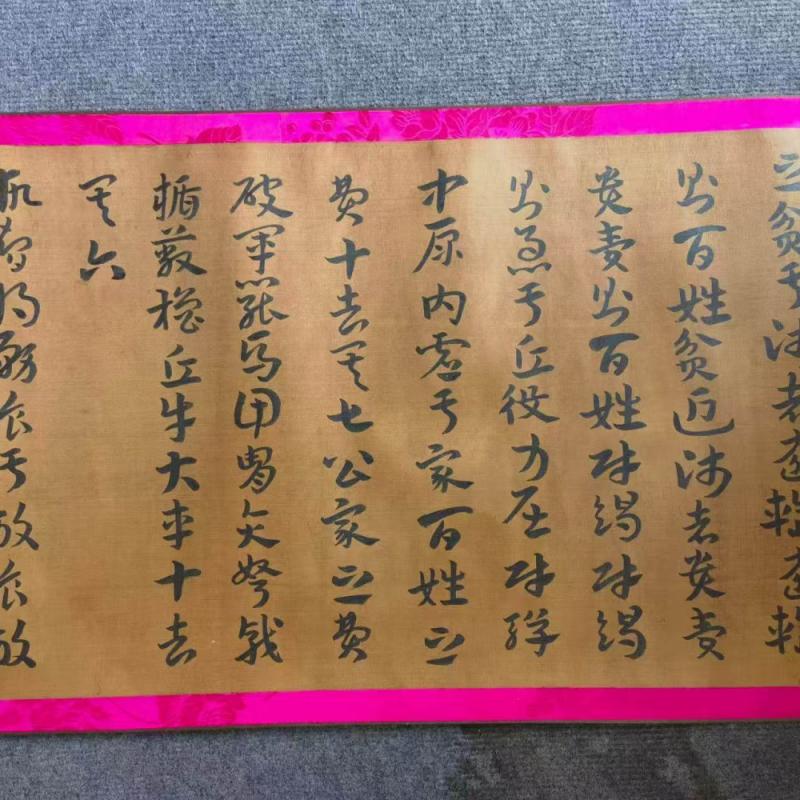 之貧于師者遠輸遠輸
則百姓貧近師者貴賣
貴賣則百姓財竭財竭
則急于丘役力屈財殫
中原內虛于家百姓之
費十去其七公家之費
破軍罷馬甲冑矢弩戟
楯蔽櫓丘牛大車十去
其六
故智將務食于敵食敵